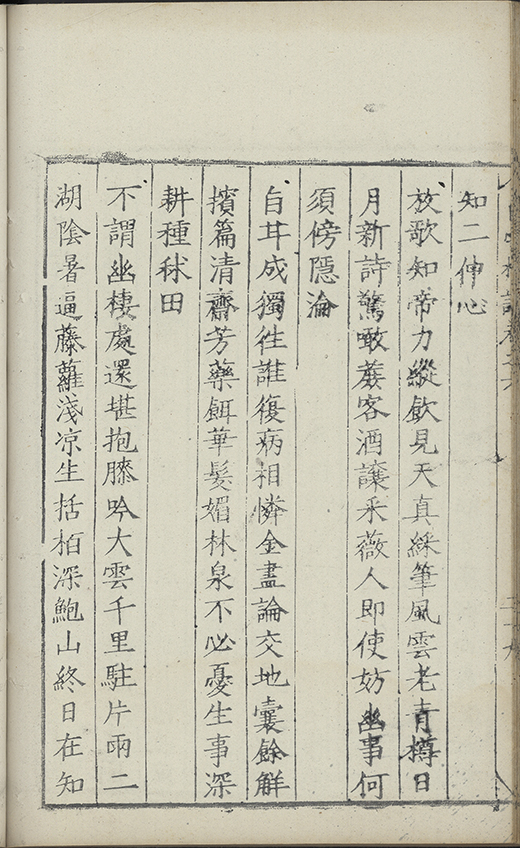 知二仲心
放歌知帝力縱飲見天真綵筆風雲老青樽日
月新詩驚敢𮎰客酒讓采薇人即使妨幽事何
須傍隱淪
自幷成獨往誰復病相憐金盡論交地囊餘解
擯篇清齋芳藥餌華髮媚林泉不必憂生事深
耕種秫田
不謂幽棲處還堪抱膝吟大雲千里駐片雨二
湖陰暑逼藤蘿淺凉生括栢深鮑山終日在知